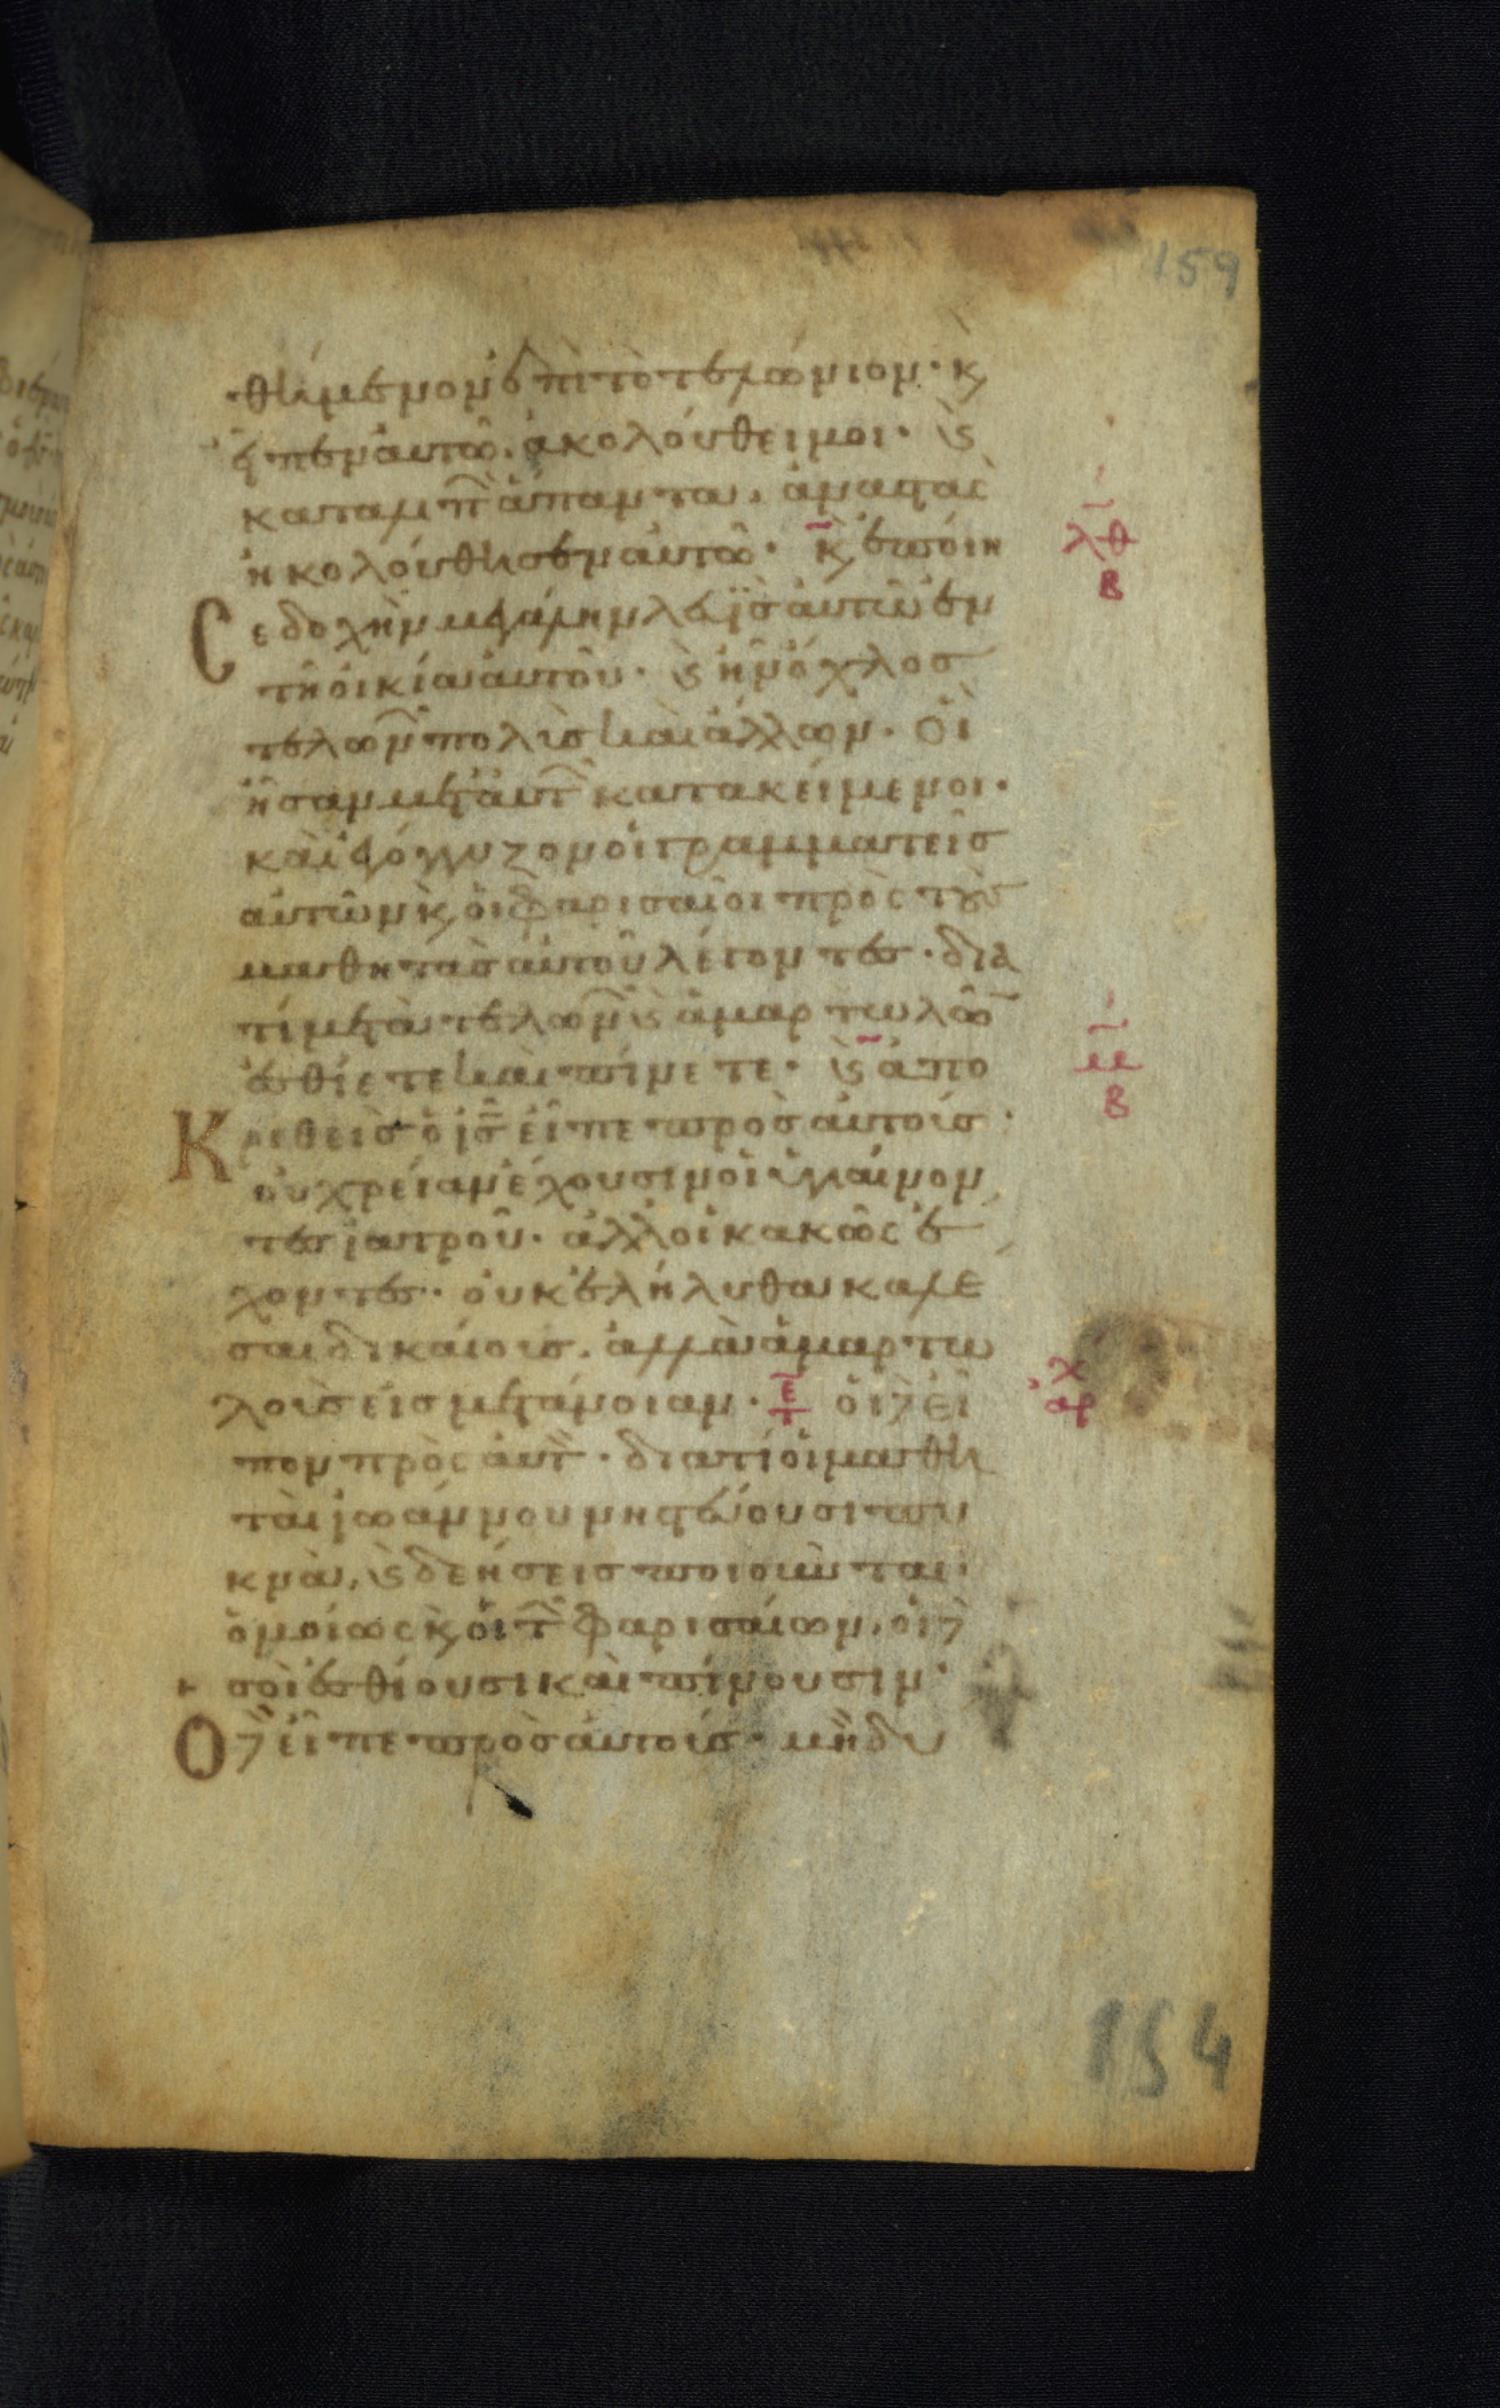 159
θήμενον ἐπὶ τὸ τελώνιον· κ
εἶπεν αὐτῶ· ἀκολούθει μοι· ϗ
καταλιπ ἅπαντα, ἀναστὰς
ἠκολούθησεν αὐτῶ· ϗ ἐποίη
λθ
β
Σε δοχὴν μεγάλην λευϊς αὐτῶ ἐν
τῆ οἰκία αὐτοῦ· ϗ ἦν ὄχλος
τελων πολὺς καὶ ἄλλων· οἳ
ἦσαν μετ αυτ κατακείμενοι·
καὶ ἐγόγγυζον οἱ γραμματεῖς
αὐτῶν ϗ οἱ φαρισαῖοι πρὸς τοὺς
μαθητὰς αὐτοῦ λέγοντες· δια
τί μετὰ τελων ϗ ἁμαρτωλῶ
ἐσθίετε καὶ πίνετε· ϗ ἀπο
μ
β
Κριθεὶς ὁ ις εἶπε πρὸς αὐτούς·
οὐ χρείαν ἔχουσιν οἱ ὑγιαίνον
τες ἰατροῦ· ἀλλ οἱ κακῶς ἔ
χοντες· οὐκ ἐλήλυθα καλέ
σαι δικαίους· ἀλλὰ ἁμαρτω
λοὺς εἰς μετάνοιαν· ε τ οἱ δὲ εἶ
χ
αρ
πον πρὸς αυτ· διατί οἱ μαθη
ταὶ ἰωάννου νηστεύουσι πυ
κνὰ, ϗ δεήσεις ποιοῦνται·
ὁμοίως ϗ οἱ τ φαρισαίων, οἱ δὲ
σοὶ ἐσθίουσι καὶ πίνουσιν·
Ο δὲ εἶπε πρὸς αὐτούς· μὴ δύ
154